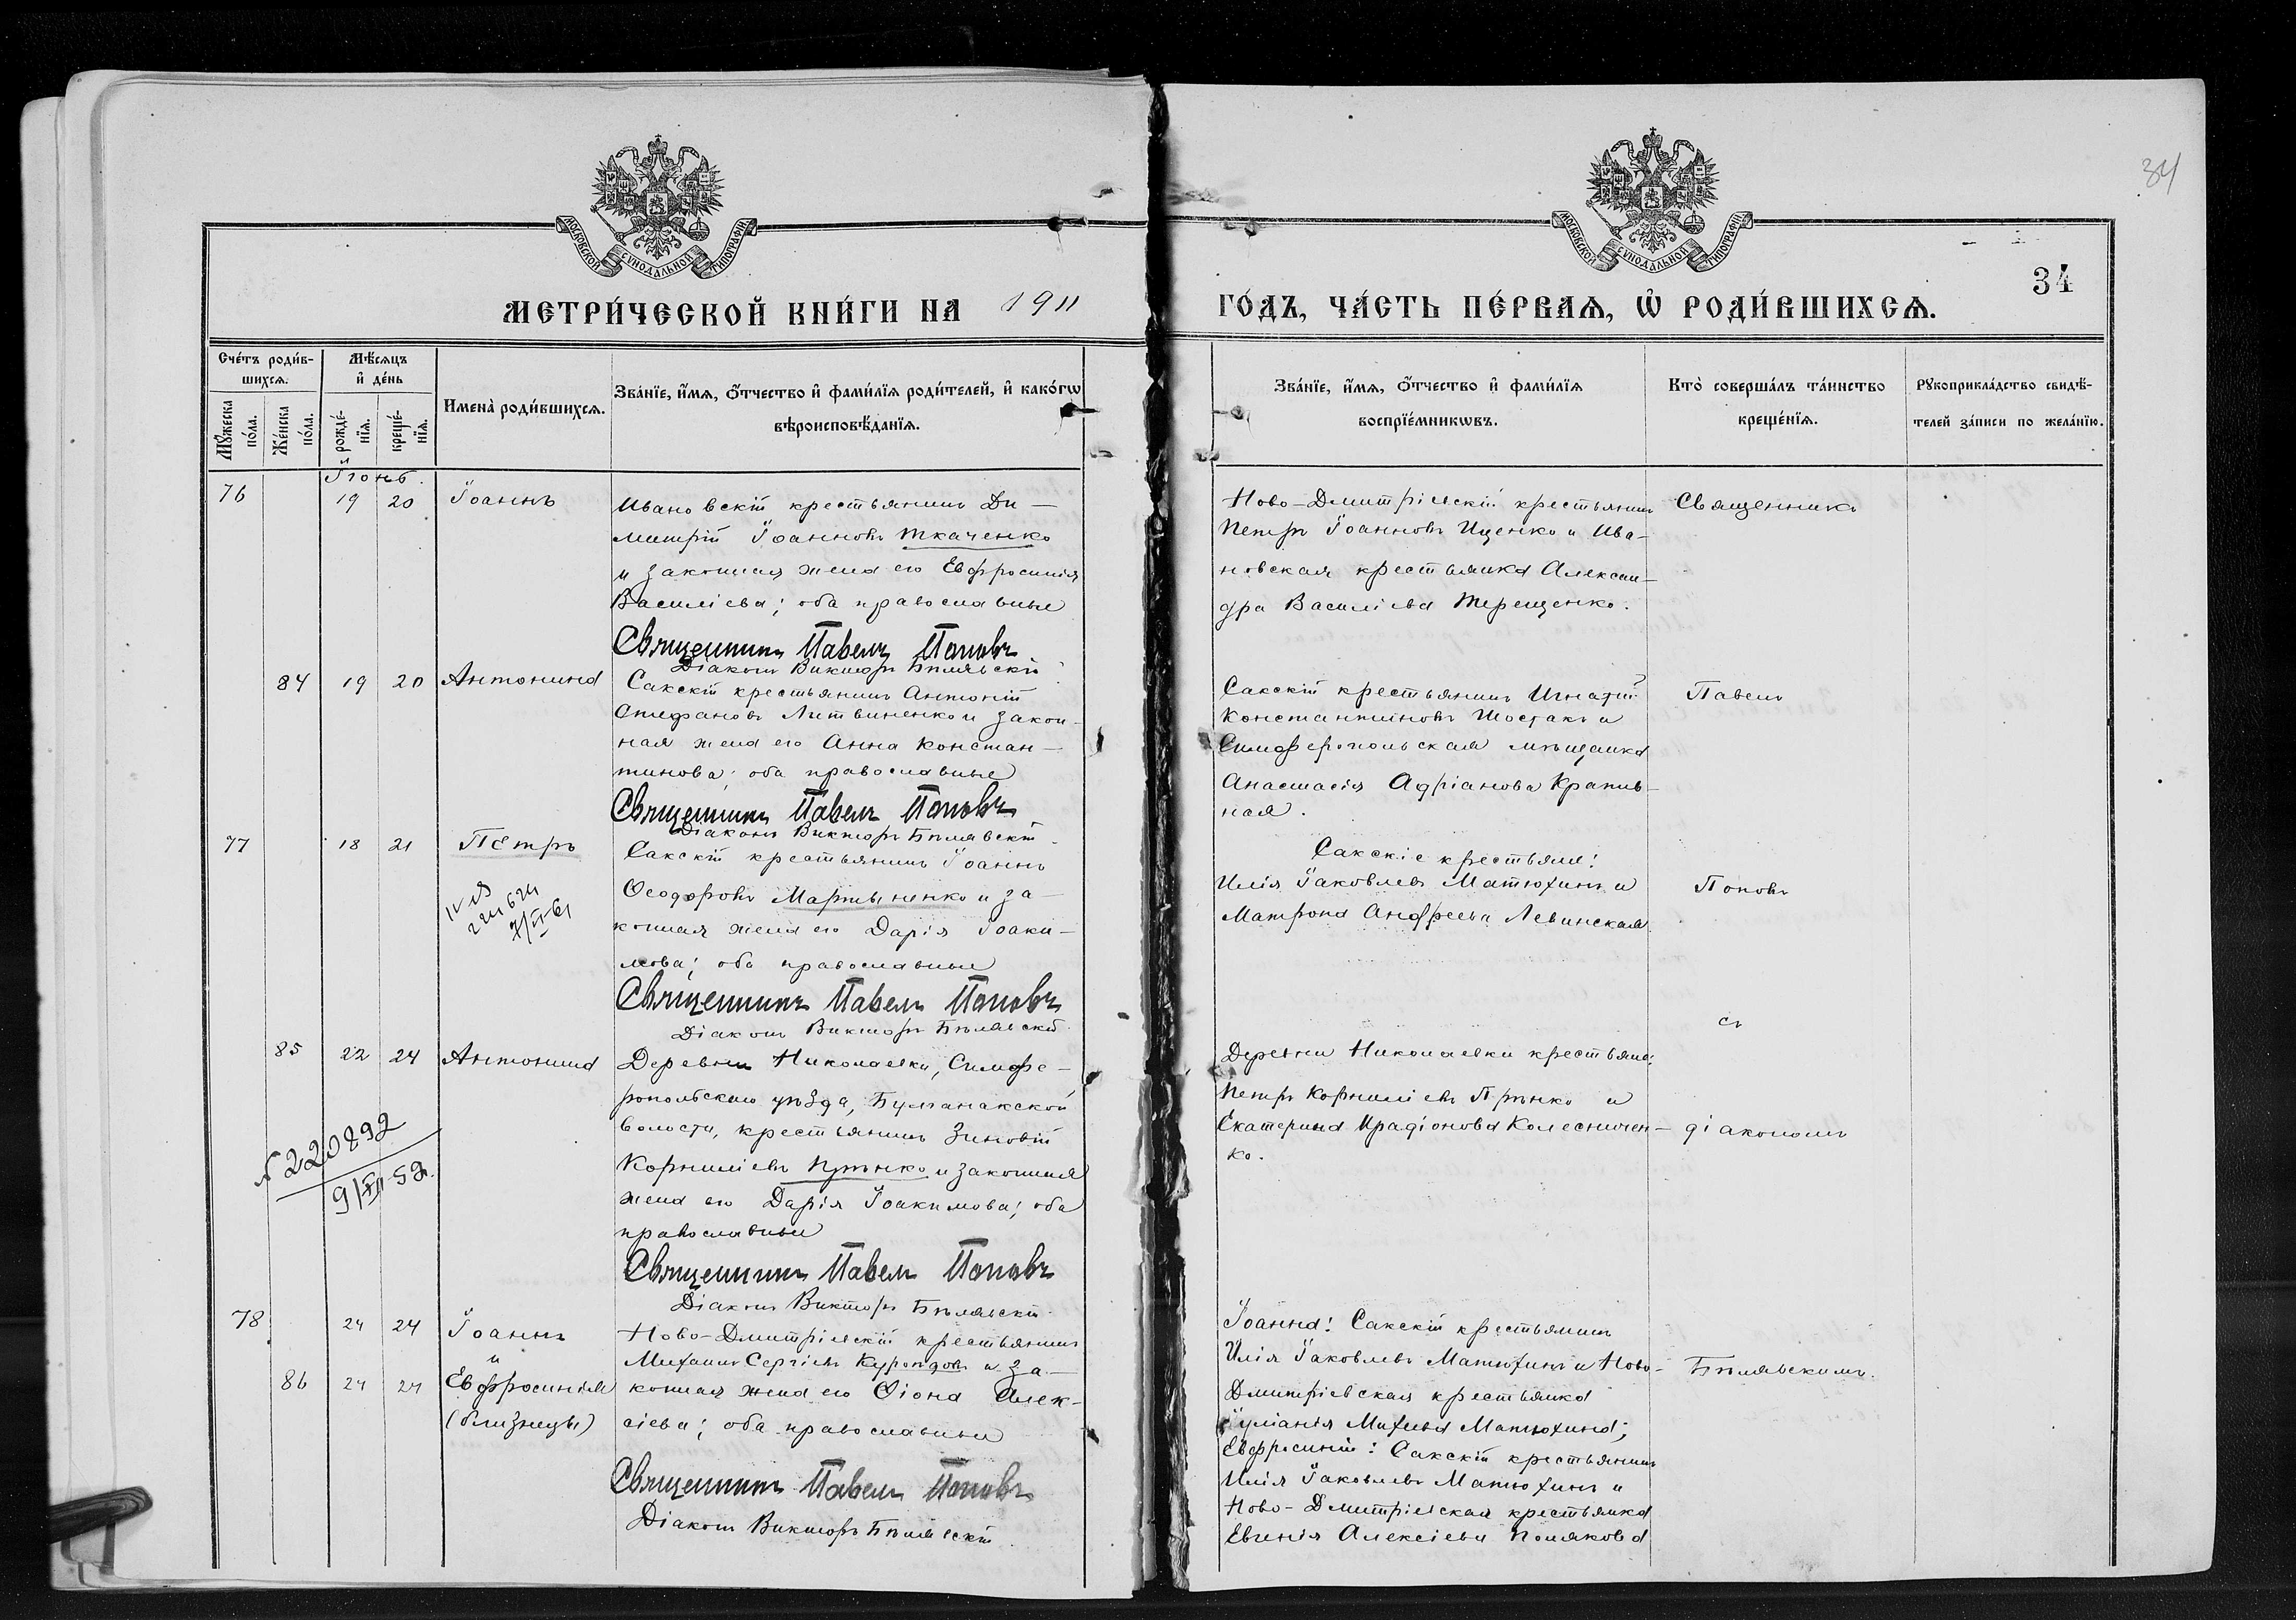 34
МОСКОВСКОЙ СѴНОДАЛЬНОЙ ТИПОГРАФІИ
МОСКОВСКОЙ СѴНОДАЛЬНОЙ ТИПОГРАФІИ
34
МЕТРИ́ЧЕСКОЙ КНИ́ГИ НА 1911
ГО́ДЪ, ЧА́СТЬ ПЕ́РВАЯ, Ѡ҆ РОДИ́ВШИХСЯ.
Сче́тъ роди́в-
шихся.
Мѣ́сяцъ
и҆ де́нь
Мꙋ́жеска по́ла.
Же́нска по́ла.
рожде́-
нїя.
креще́-
нїя.
Имена̀ роди́вшихся.
Зва́нїе, и҆́мя, ѻ҆́тчество и҆ фами́лїя роди́телей, и҆ како́гѡ
вѣроисповѣ́данїя.
Зва́нїе, и҆́мя, ѻ҆́тчество и҆ фами́лїя
воспрїе́мникѡвъ.
Кто̀ соверша́лъ та́инство
креще́нїя.
Рꙋкоприкла́дство свидѣ́-
телей за́писи по жела́нїю.
Іюнь.
76 19 20 Іоаннъ
Ивановскій крестьянинъ Ди-
митрій Іоанновъ Ткаченко
и законная жена его Евфросинія
Василіева; оба православные
Священникъ Павелъ Поповъ
Діаконъ Викторъ Бѣлявскій
Ново-Дмитріевскій крестьянинъ
Петръ Іоанновъ Ищенко и Ива-
новская крестьянка Алексан-
дра Василіева Терещенко.
Священникъ
84 19 20 Антонина
Сакскій крестьянинъ Антоній
Стефановъ Литвиненко и закон-
ная жена его Анна Констан-
тинова; оба православные
Священникъ Павелъ Поповъ
Діаконъ Викторъ Бѣлявскій
Сакскій крестьянинъ Игнатій
Константиновъ Шостакъ и
Симферопольская мѣщанка
Анастасія Адріанова Крапив-
ная.
Павелъ
77 18 21 Петръ
7/VI-61
Сакскій крестьянинъ Іоаннъ
Ѳеодоровъ Мартыненко и за-
конная жена его Дарія Іоаки-
мова; оба православные
Священникъ Павелъ Поповъ
Діаконъ Викторъ Бѣлявскій
Сакскіе крестьяне:
Илія Іаковлевъ Матюхинъ и
Матрона Андреева Левинская.
Поповъ
съ
85 22 24 Антонина
N 220892
9/XII-52.
Деревни Николаевки, Симфе-
ропольскаго уѣзда, Булганакской
волости, крестьянинъ Зиновій
Корниліевъ Прѣнко и законная
жена его Дарія Іоакимова; оба
православные
Священникъ Павелъ Поповъ
Діаконъ Викторъ Бѣлявскій
Деревни Николаевки крестьяне:
Петръ Корниліевъ Прѣнко и
Екатерина Иродіонова Колесничен-
ко.
діакономъ
78 24 24 Іоаннъ
и
86 24 24 Евфросинія
(близнецы)
Ново-Дмитріевскій крестьянинъ
Михаилъ Сергіевъ и за-
конная жена его Ѳіона Алек-
сіева; оба православные
Священникъ Павелъ Поповъ
Діаконъ Викторъ Бѣлявскій
Іоанна: Сакскій крестьянинъ
Илія Іаковлевъ Матюхинъ и Ново-
Дмитріевская крестьянка
Іуліанія Матюхина;
Евфросиніи: Сакскій крестьянинъ
Илія Іаковлевъ Матюхинъ и
Ново-Дмитріевская крестьянка
Евгенія Алексіева Полякова
Бѣлявскимъ.